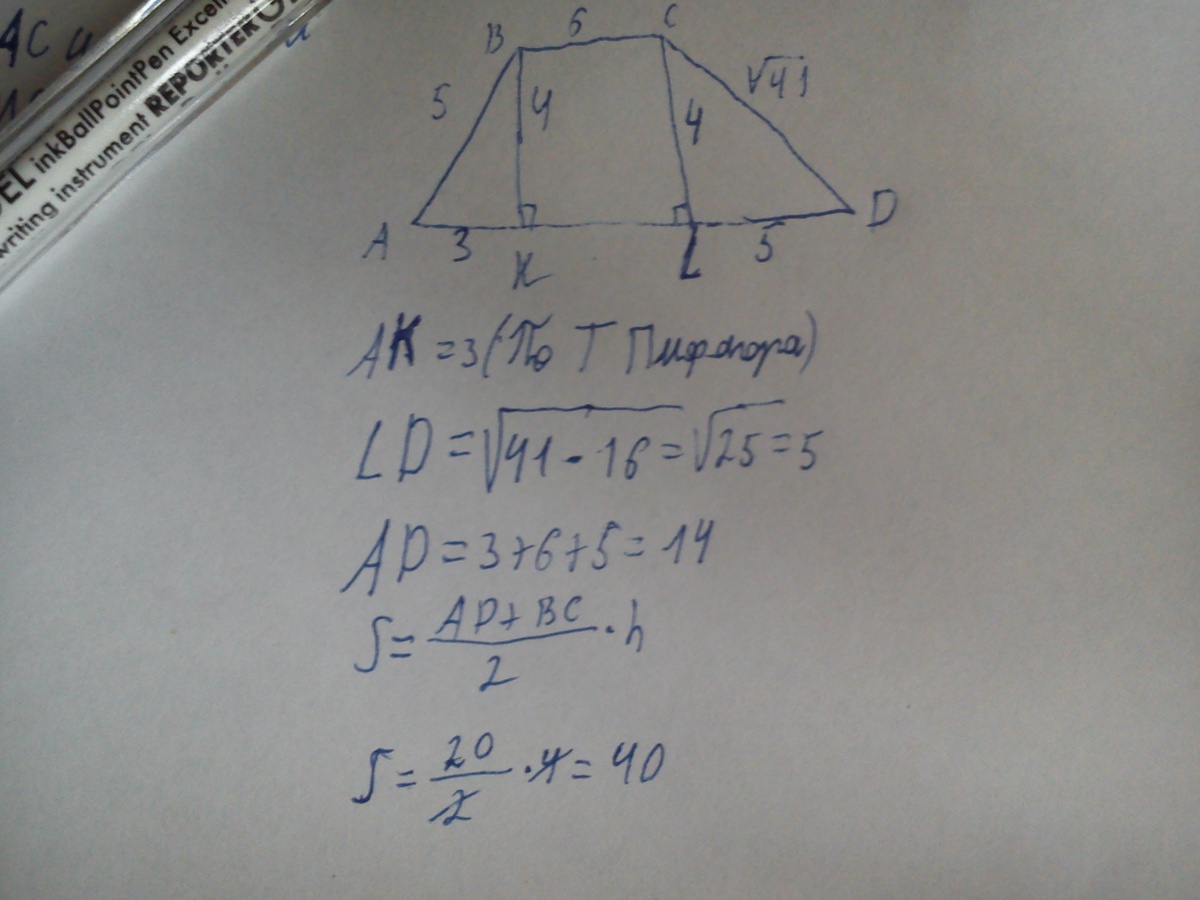 АС и
и
DEL inkBallPointPen Excell
writing instrument REPORTER
B 6 C
5 4 4 √41
A 3 K L 5 D
AK = 3 (По Т Пифагора)
LD = √41 - 16 = √25 = 5
AD = 3 + 6 + 5 = 14
S = AD + BC / 2 · h
S = 20 / 2 · 4 = 40